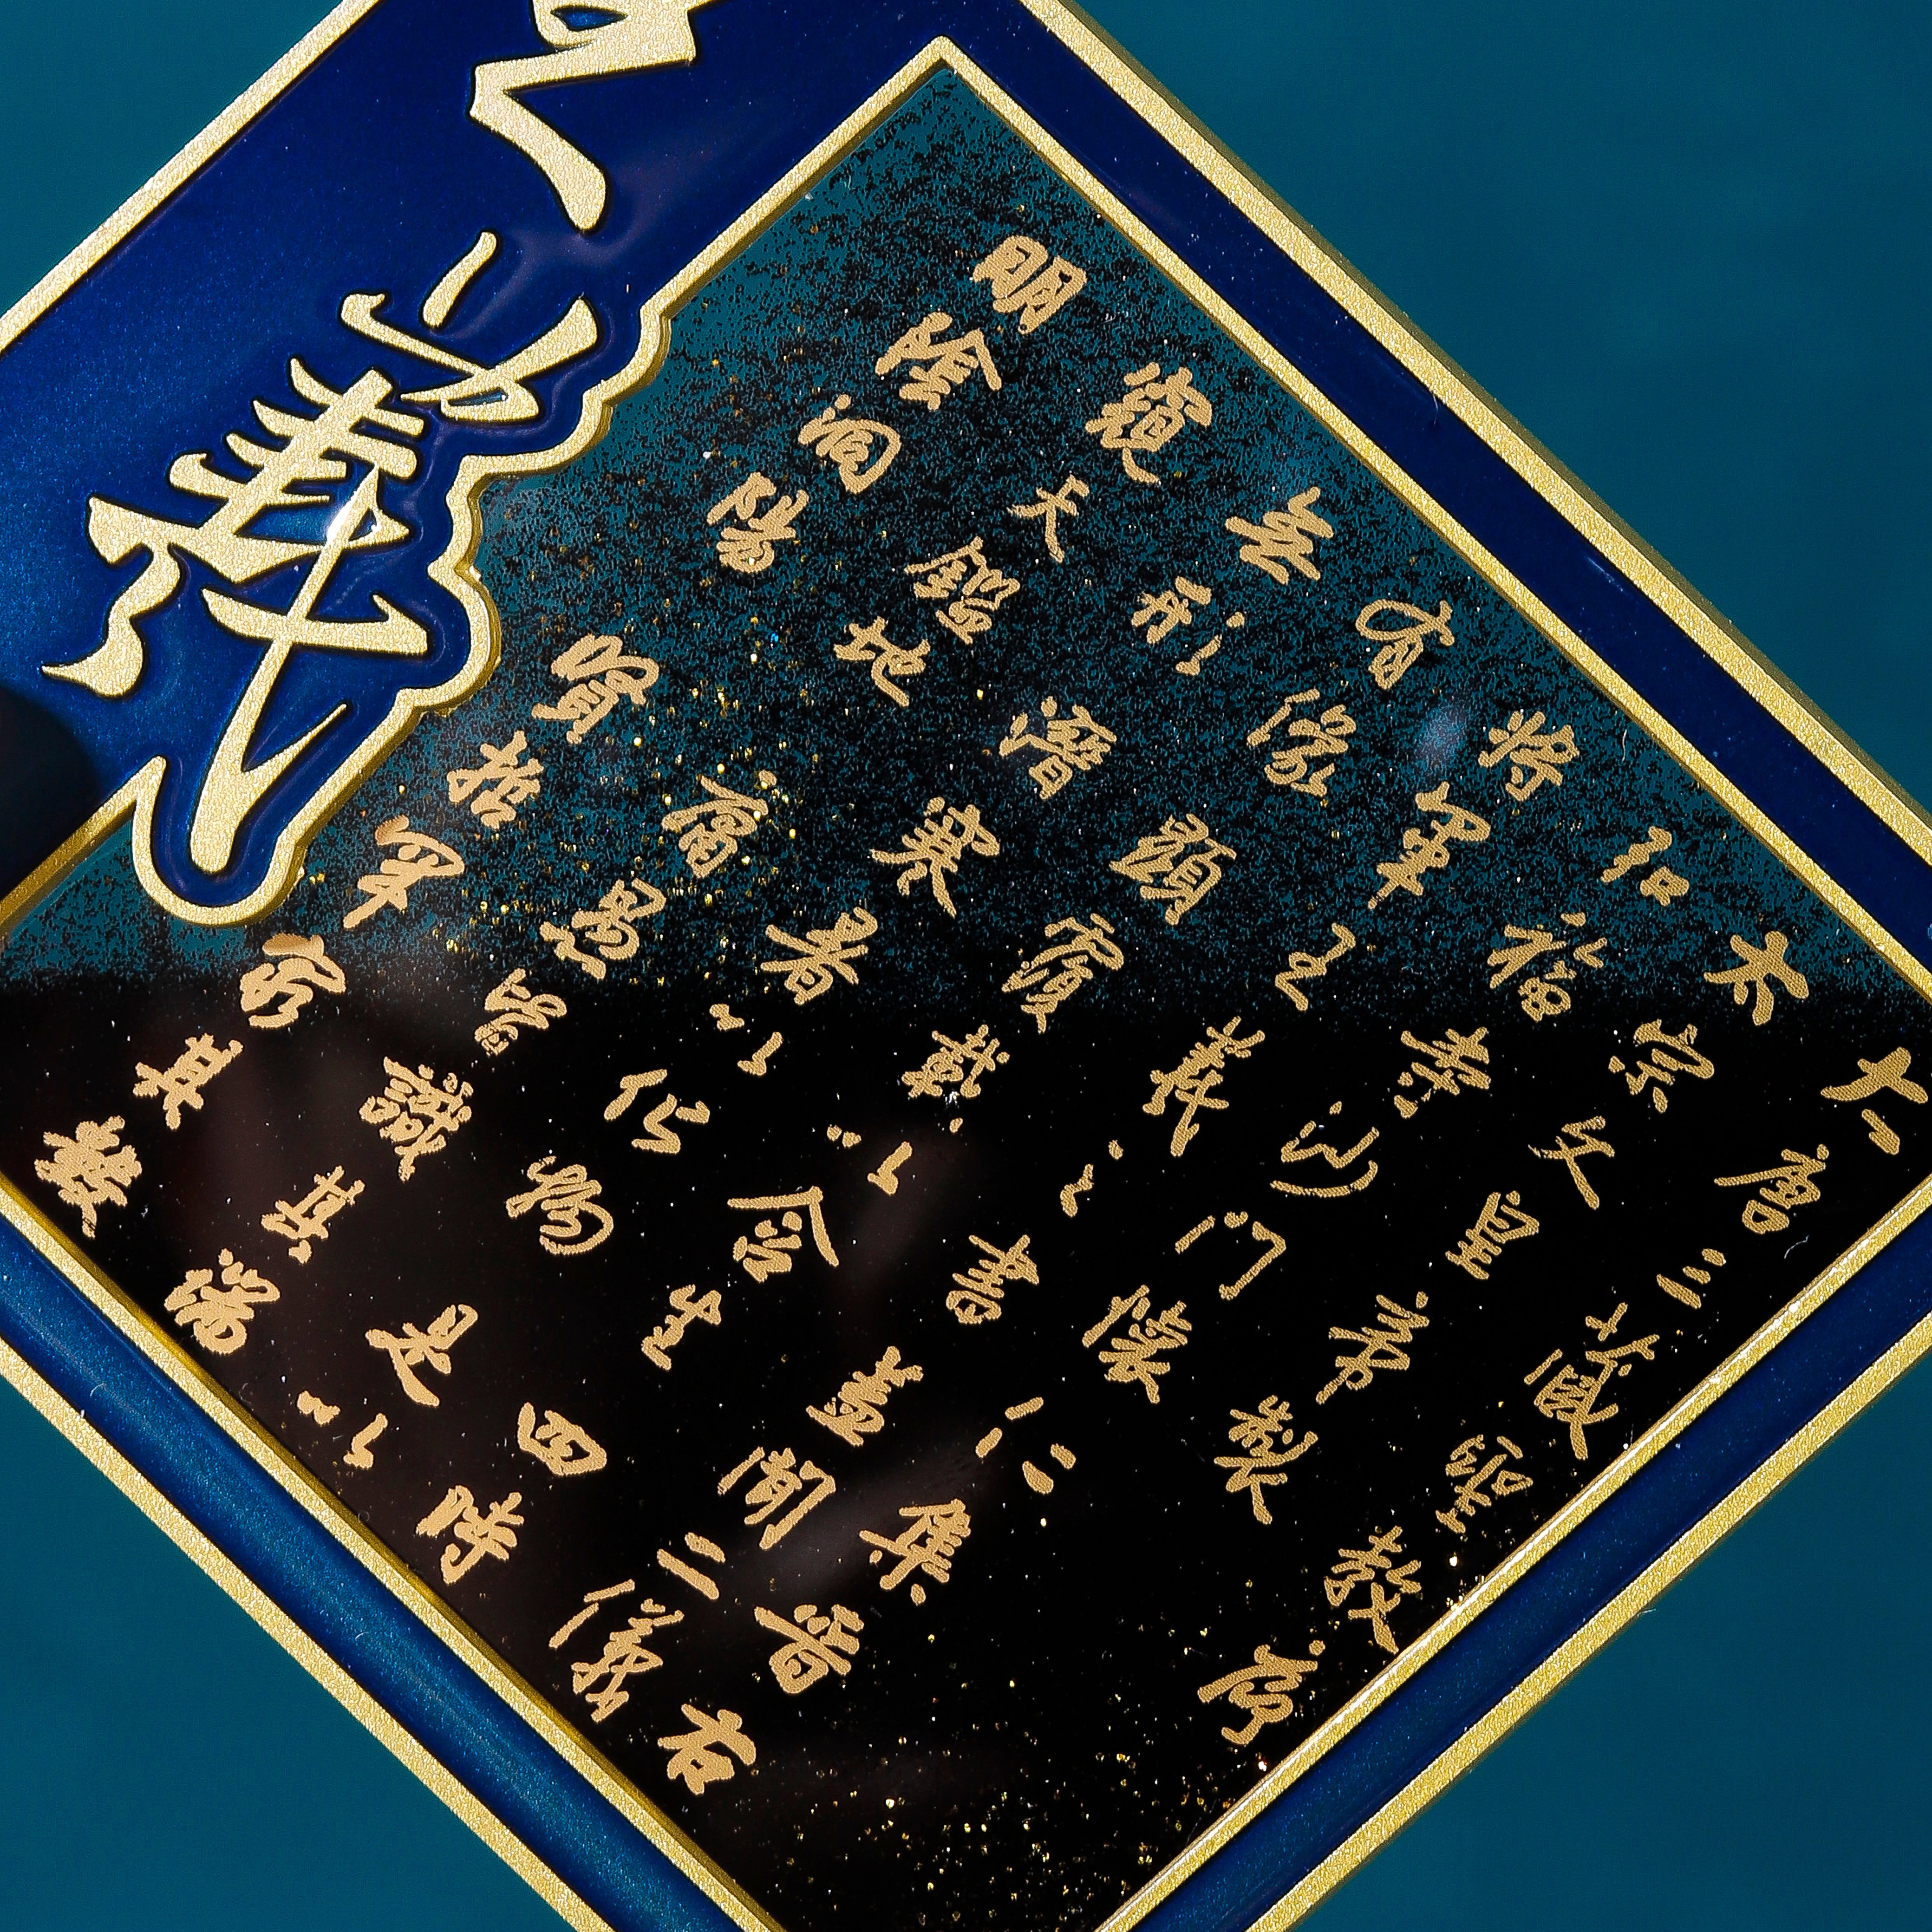 羲
大唐三藏聖教序
太宗文皇帝製
弘福寺沙門懷仁集晉右
將軍王羲之書蓋聞二儀
有像顯覆載以含生四時
無形潛寒暑以化物是以
窺天鑑地庸愚皆識其端
明陰洞陽賢哲罕窮其數